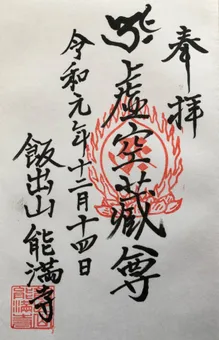 奉拝
虚空蔵尊
令和元年十二月十四日
飯出山能満寺